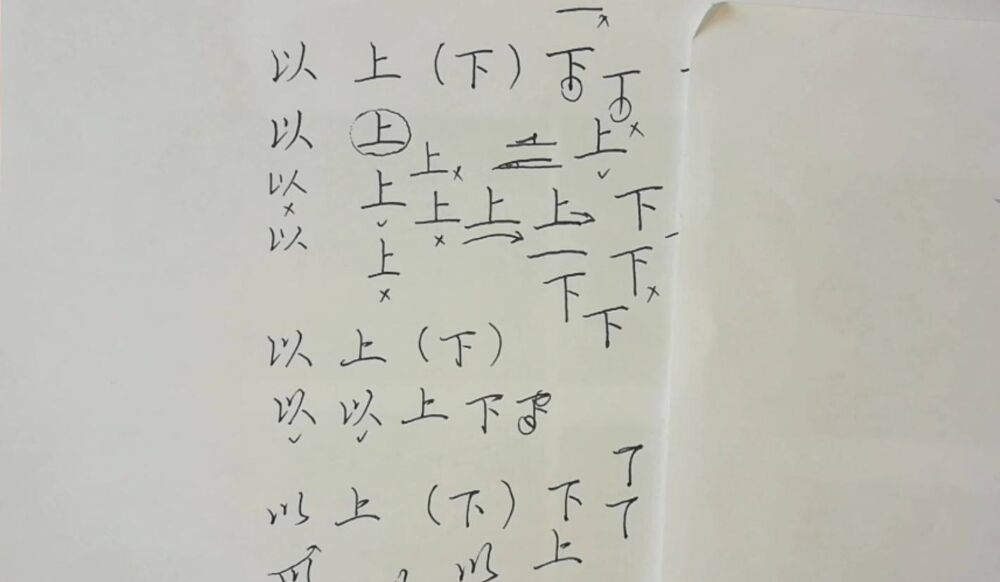 以 上 (下) 下 下
以 上 上 上
以 上 上 上 上 下
以 上 下 下 下
以 上 (下)
以 以 上 下 下
以 上 (下) 下
以 上